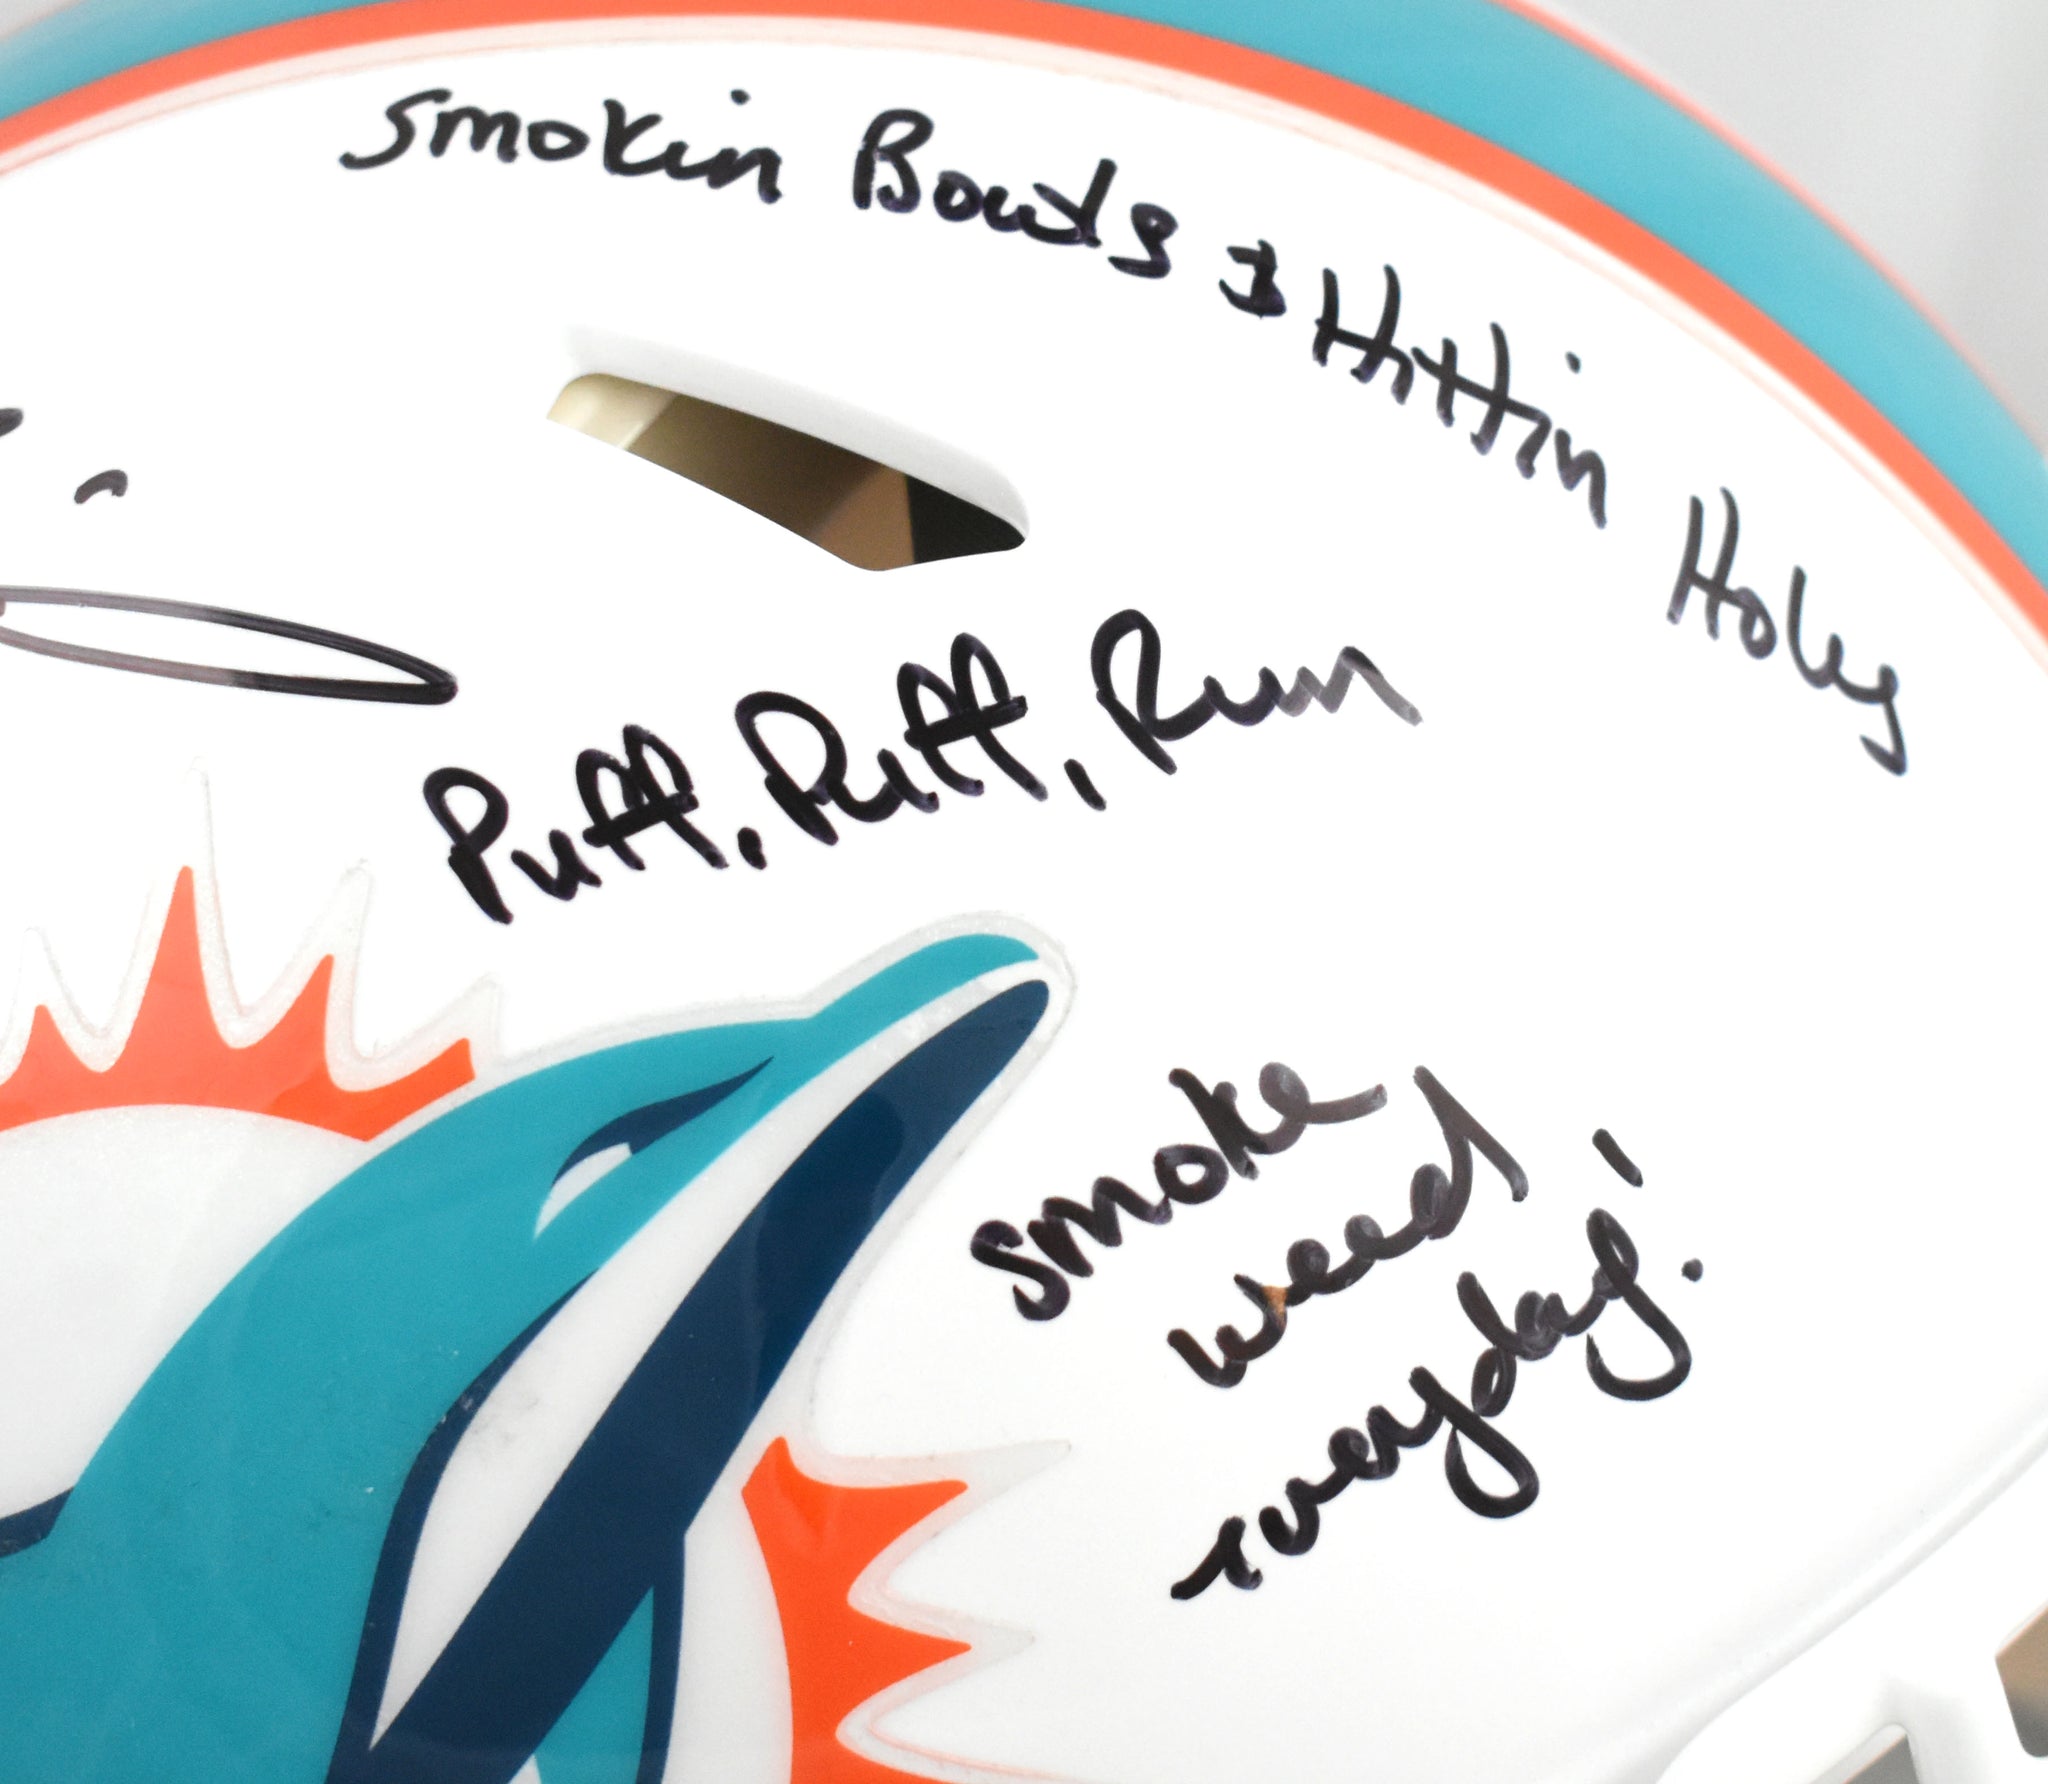 Smokin Bowls & Hittin Holes
Puff, Puff, Run
Smoke
weed
everyday!